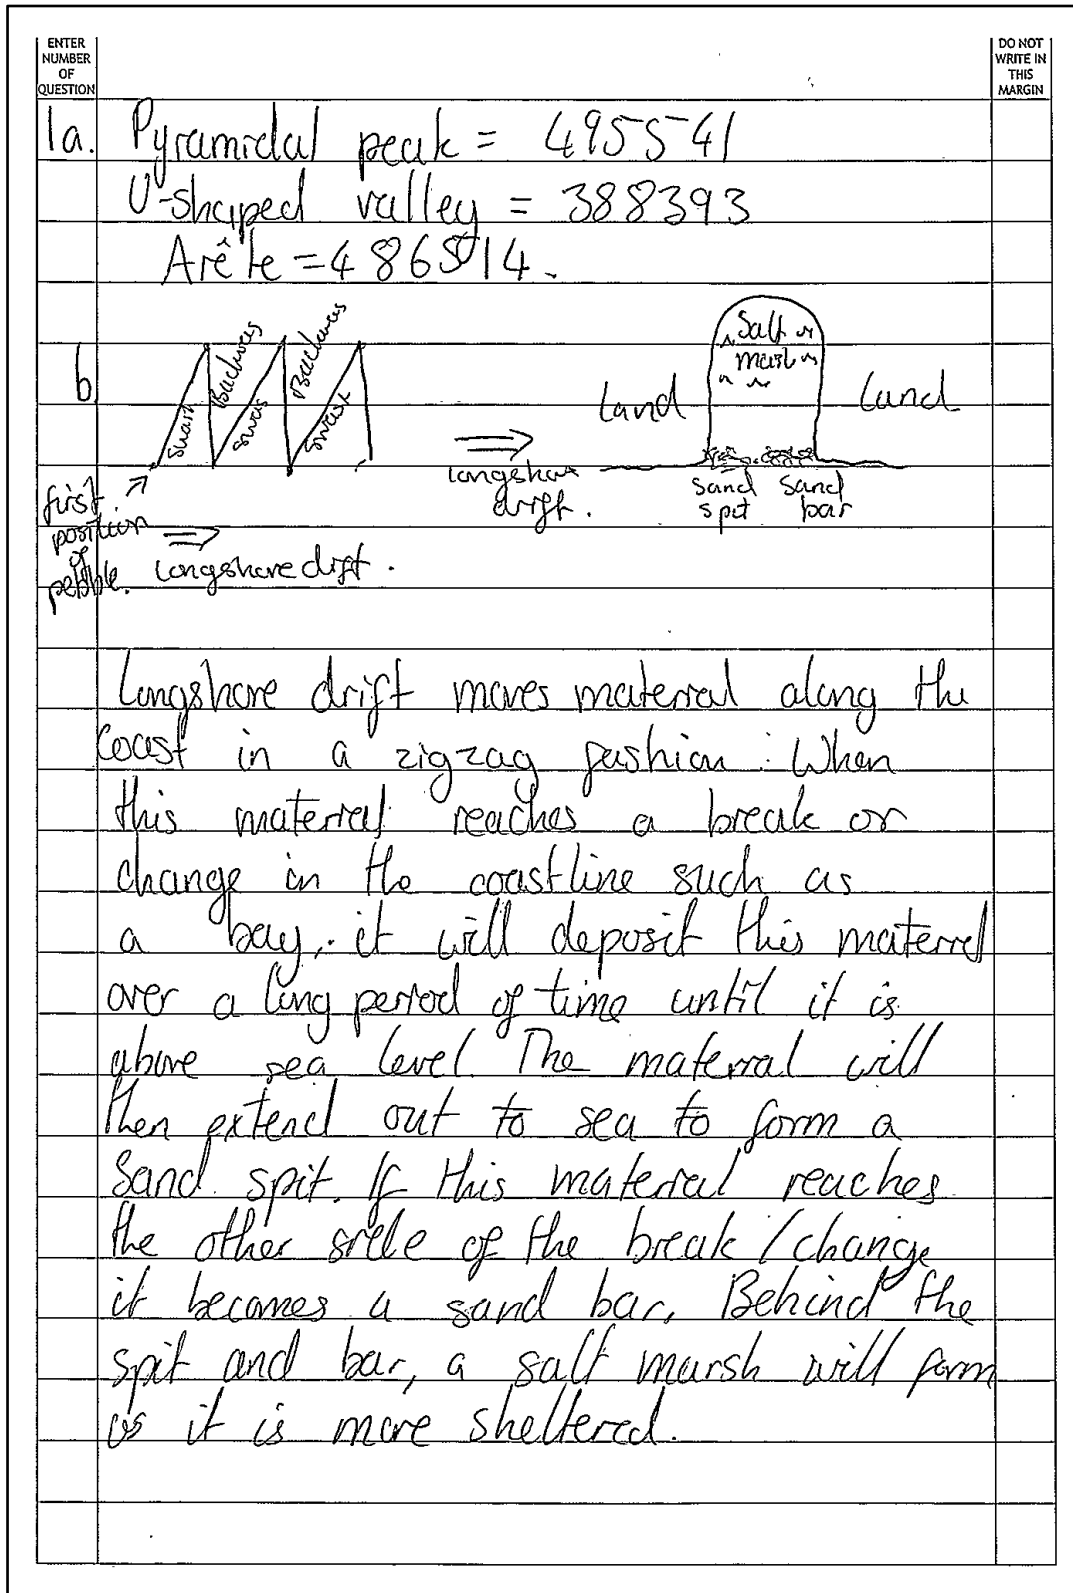 ENTER
NUMBER
OF
QUESTION
DO NOT
WRITE IN
THIS
MARGIN
1a. Pyramidal peak = 495541
U-shaped valley = 388393
Arête = 486514.
b
Swash
Backwash
Swash
Backwash
Swash
first
position
of
pebble.
longshore drift.
longshore
drift.
Land
Salt
marsh
Land
sand
spit
sand
bar
Longshore drift moves material along the
coast in a zigzag fashion. When
this material reaches a break or
change in the coastline such as
a bay, it will deposit this material
over a long period of time until it is
above sea level. The material will
then extend out to sea to form a
sand spit. If this material reaches
the other side of the break/change
it becomes a sand bar. Behind the
spit and bar, a salt marsh will form
as it is more sheltered.